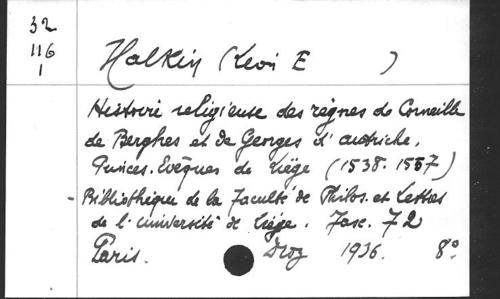 32
116
1
Halkin (Léon E )
Histoire religieuse des règnes de Corneille
de Berghes et de Georges d'Autriche,
Princes-Evêques de Liége (1538-1557)
- Bibliothèque de la Faculté de Philos. et Lettres
de l'université de Liége. Fasc. 72
Paris. Droz 1936. 8°